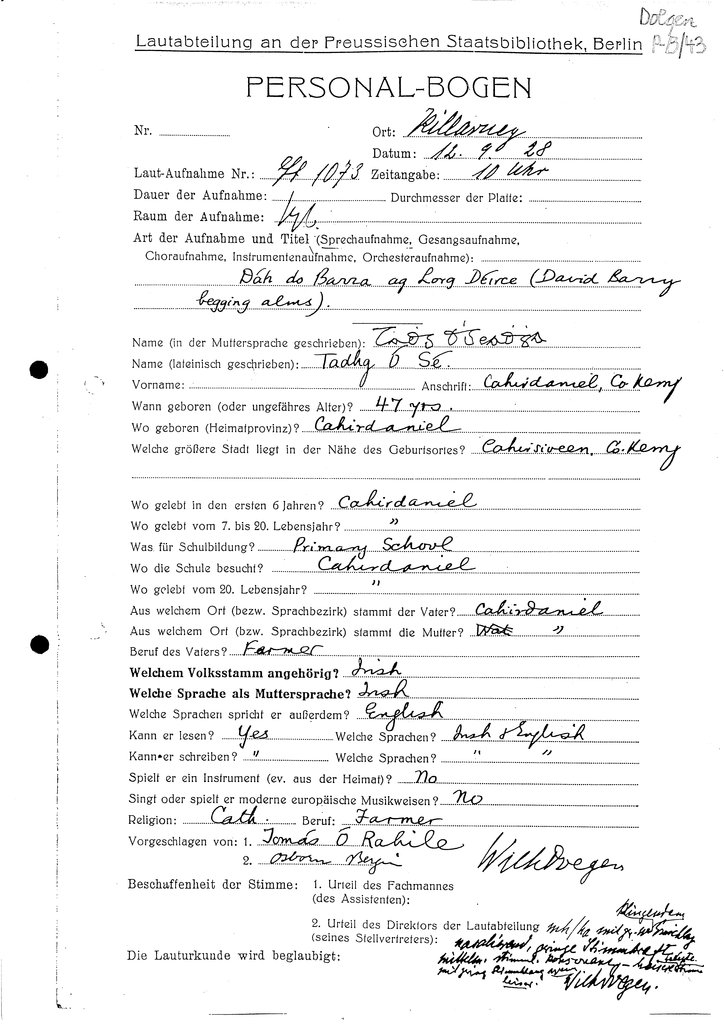 Doegen
Lautabteilung an der Preussischen Staatsbibliothek, Berlin
PERSONAL-BOGEN
Nr. Ort: Killarney
Datum: 12. 9. 28
Laut-Aufnahme Nr.: 1073 Zeitangabe: 10 Uhr
Dauer der Aufnahme: Durchmesser der Platte:
Raum der Aufnahme:
Art der Aufnahme und Titel (Sprechaufnahme, Gesangsaufnahme,
Choraufnahme, Instrumentenaufnahme, Orchesteraufnahme):
Dáh do Barra ag Lorg Déirce (David Barry
begging alms).
Name (in der Muttersprache geschrieben):
Name (lateinisch geschrieben): Tadhg Ó Sé.
Vorname: Anschrift: Cahirdaniel, Co Kerry
Wann geboren (oder ungefähres Alter)? 47 yrs.
Wo geboren (Heimatprovinz)? Cahirdaniel
Welche größere Stadt liegt in der Nähe des Geburtsortes? Cahirsiveen, Co. Kerry
Wo gelebt in den ersten 6 Jahren? Cahirdaniel
Wo gelebt vom 7. bis 20. Lebensjahr? "
Was für Schulbildung? Primary School
Wo die Schule besucht? Cahirdaniel
Wo gelebt vom 20. Lebensjahr? "
Aus welchem Ort (bezw. Sprachbezirk) stammt der Vater? Cahirdaniel
Aus welchem Ort (bezw. Sprachbezirk) stammt die Mutter? "
Beruf des Vaters? Farmer
Welchem Volksstamm angehörig? Irish
Welche Sprache als Muttersprache? Irish
Welche Sprachen spricht er außerdem? English
Kann er lesen? Yes Welche Sprachen? Irish & English
Kann er schreiben? " Welche Sprachen? " "
Spielt er ein Instrument (ev. aus der Heimat)? No
Singt oder spielt er moderne europäische Musikweisen? No
Religion: Cath. Beruf: Farmer
Vorgeschlagen von: 1. Tomás Ó Rahile
2. Osborn Bergin Wilh Doegen
Beschaffenheit der Stimme: 1. Urteil des Fachmannes
(des Assistenten):
2. Urteil des Direktors der Lautabteilung
(seines Stellvertreters):
Die Lauturkunde wird beglaubigt: Wilh Doegen.